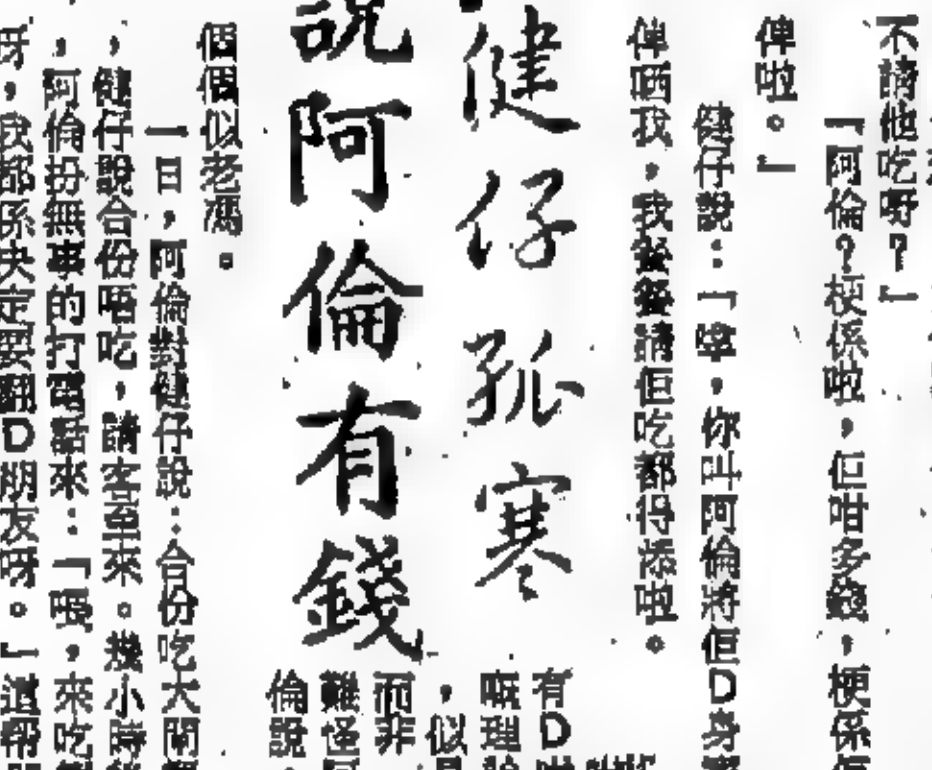 不請他吃呀？」
「阿倫？梗係啦，佢咁多錢，梗係佢
俾啦。」
健仔說：「嘩，你叫阿倫將佢D身
俾晒我，我餐餐請佢吃都得添啦。
健仔孤寒
說阿倫有錢
有D
嘅理
，似
而非
難怪阿
倫說，
個個似老馮。
一日，阿倫對健仔說：合份吃大閘
，健仔說合份唔吃，請客至來。幾小時
，阿倫扮無事的打電話來：「喂，來吃
呀，我都係決定要翻D朋友呀。」這幫